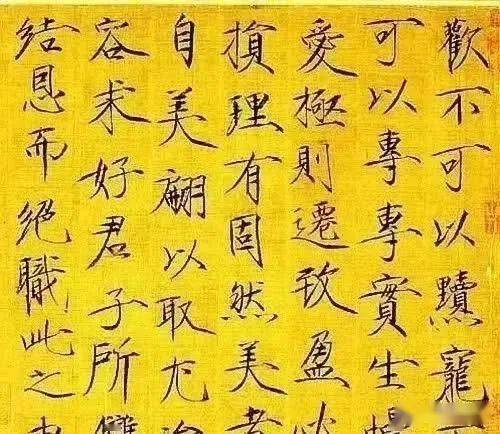 歡不可以黷寵
可以專專實生
愛極則遷致盈必
損理有固然美者
自美翩以取尤
容求好君子所
結恩而絕職此之